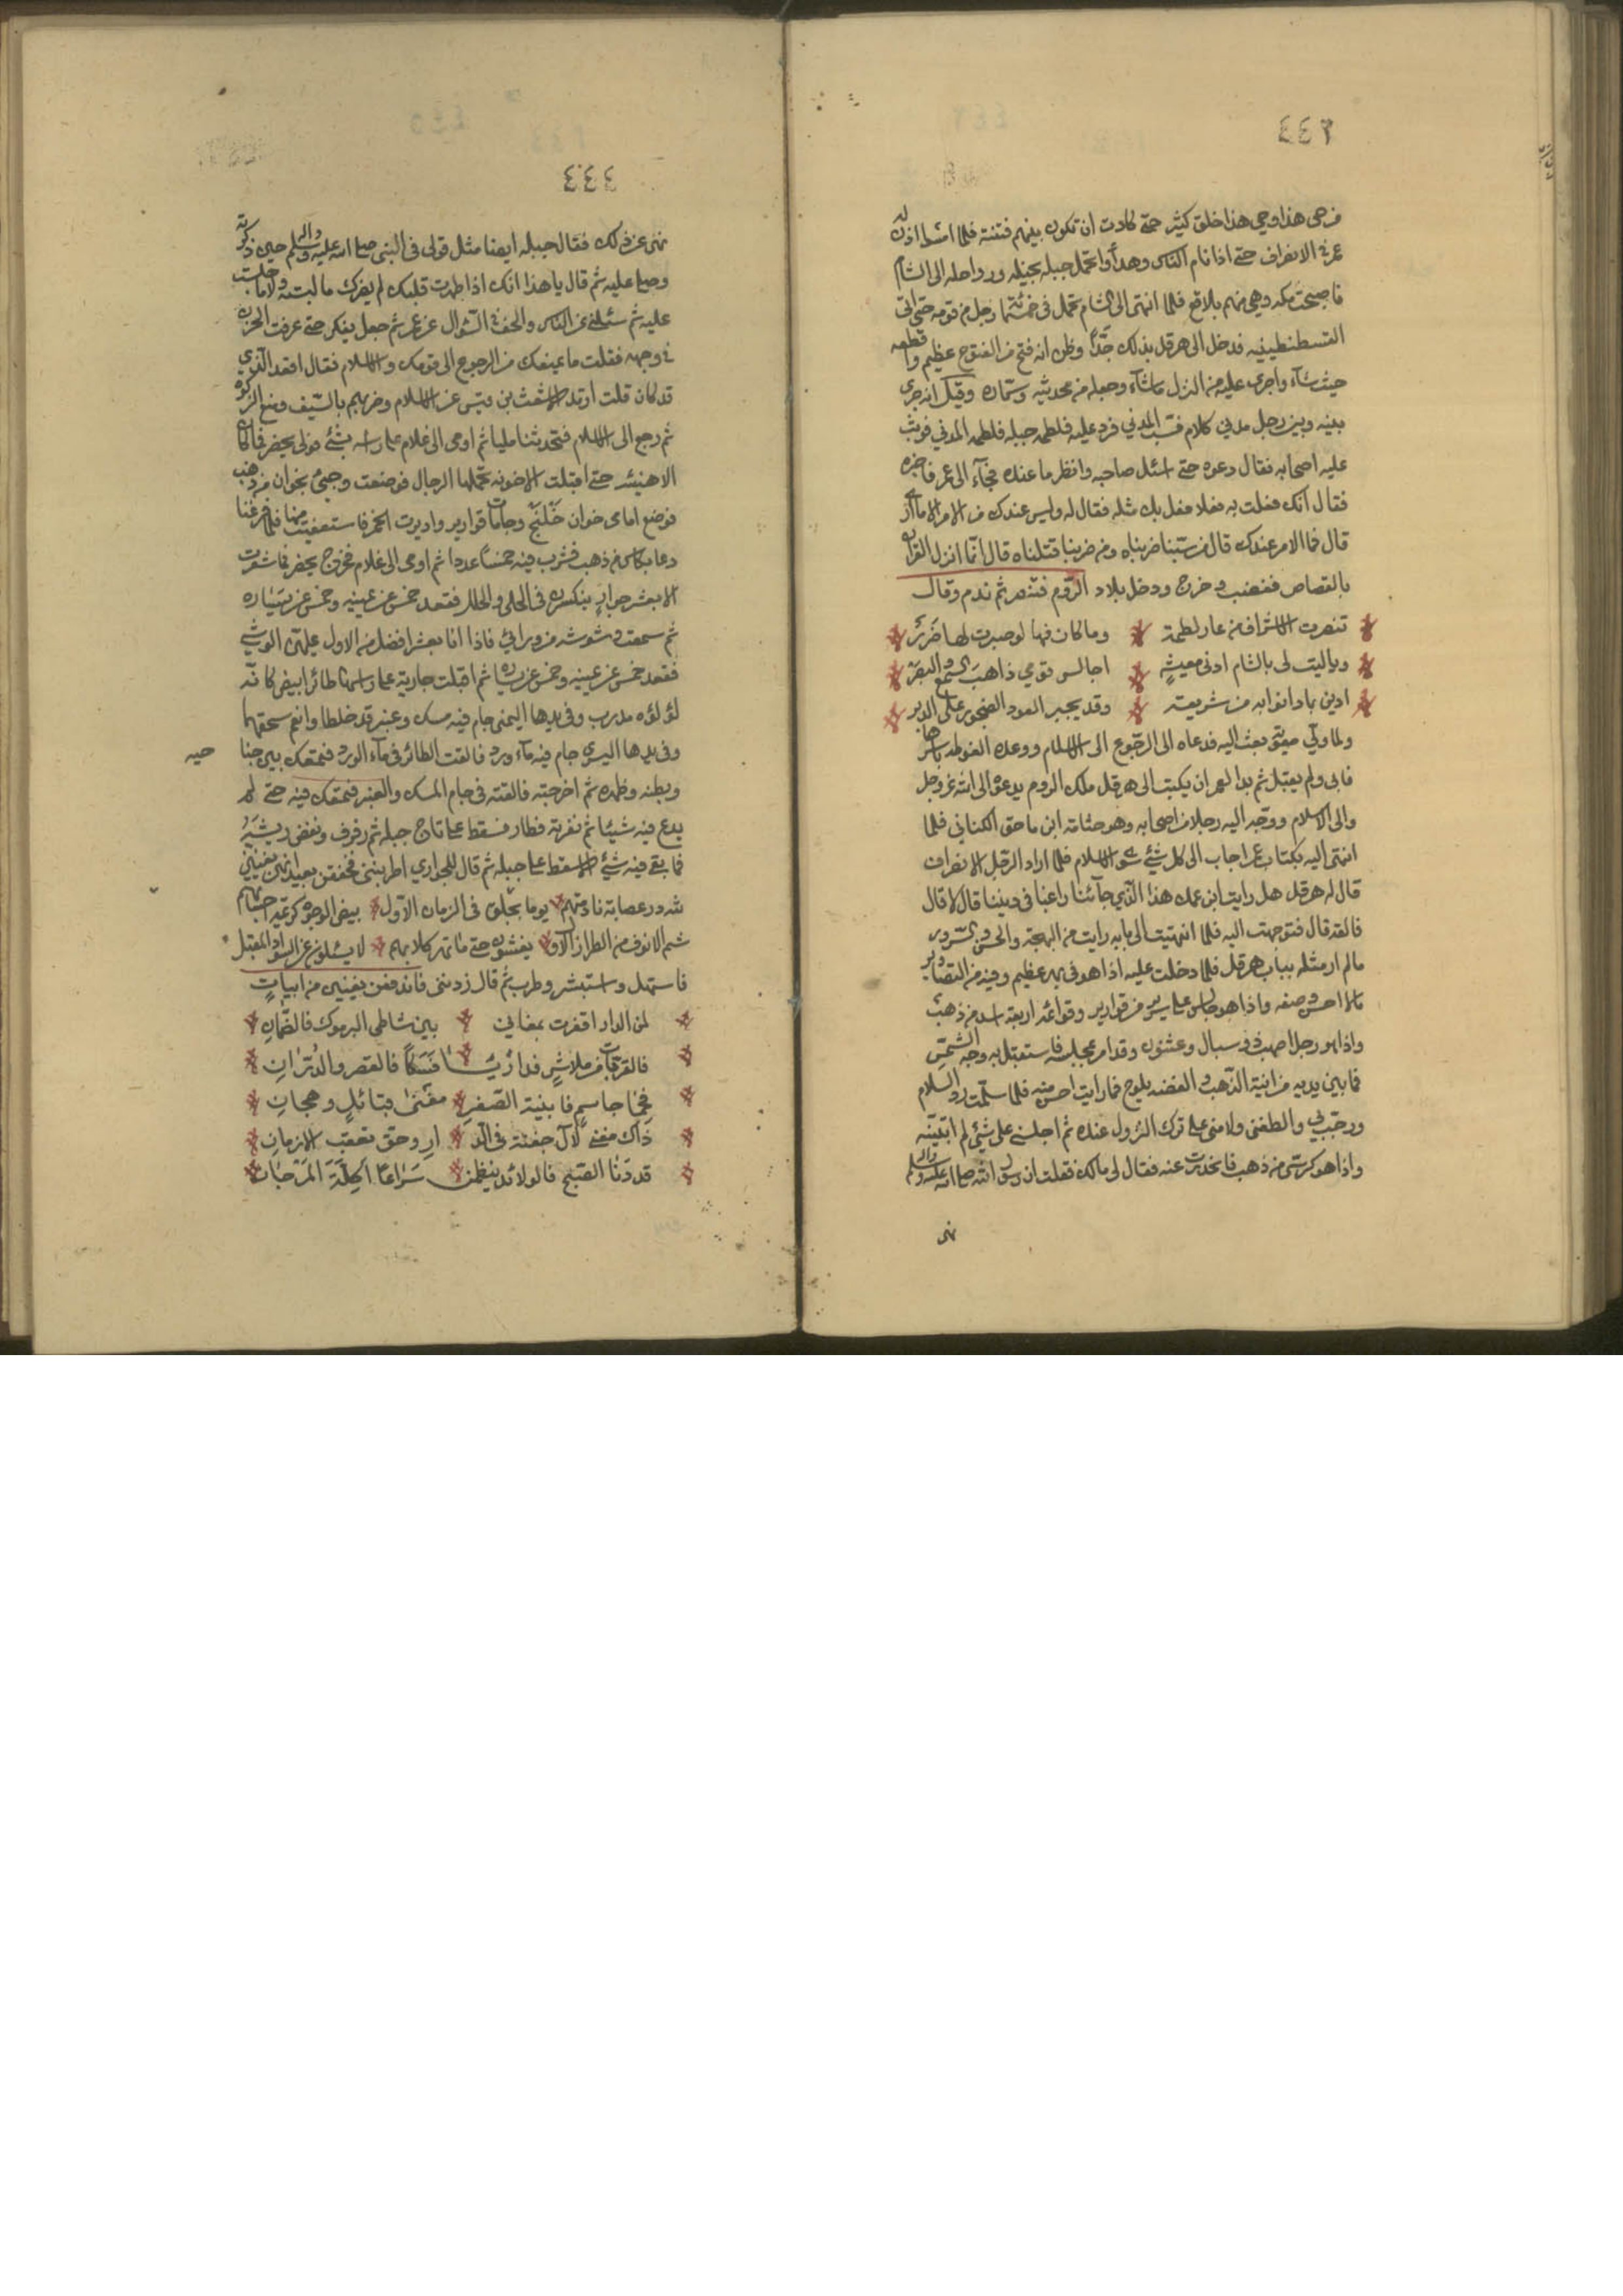 ٤٤٣
من حي هذا وحي هذا خلق كثير حتى كادت ان تكون بينهم فتنة فلما امسوا اذن له
عمر في الانصراف حتى اذا نام الناس وهدأوا تحمل جبله بخيله ورواحله الى الشام
فاصبحت مكه وهي منهم بلاقع فلما انتهى الى الشام تحمل في خمسمائة رجل من قومه حتى اتى
القسطنطينيه فدخل الى هرقل بذلك جدّاً وظن انه فتح من الفتوح عظيم واقطعه
حيث شآء واجرى عليه من النزل ماشآء وجعله من محدثيه وسمّاره وقيل انه جرى
بينه وبين رجل مدني كلام فسب المدني فرد عليه فلطمه جبله فلطمه المدني فوثب
عليه اصحابه فقال دعوه حتى اسئل صاحبه وانظر ما عنده فجآء الى عمر فاخبره
فقال انك فعلت به فعلا ففعل بك مثله فقال له وليس عندك من الامر الا ما ارى
قال فما الامر عندك قال من سبّنا ضربناه ومن ضربنا قتلناه قال انّما انزل القران
بالقصاص فغضب وخرج ودخل بلاد الرّوم فتنصر ثم ندم وقال
تنصرت الاشراف من عار لطمة وما كان فيها لو صبرت لها ضرر
وياليت لى بالشام ادنى معيشةٍ اجالس قومي ذاهب السّمع والبصر
ادين بما دانوا به من شريعته وقد يجبر العود الضجور على الدبر
ولما ولّي معويّة بعث اليه فدعاه الى الرجوع الى الاسلام ووعده الغوطه باسرها
فابى ولم يقبل ثم بدا لعمر ان يكتب الى هرقل ملك الروم يدعوه الى الله عز وجل
والى الاسلام ووجّه اليه رجلا من اصحابه وهو جثامة ابن ماحق الكناني فلما
انتهى اليه بكتاب عمر اجاب الى كل شئ سوى الاسلام فلما اراد الرّجل الانصراف
قال له هرقل هل رايت ابن عمك هذا الّذي جآئنا راغبا في ديننا قال لا قال
فالقه قال فتوجهت اليه فلما انتهيت الى بابه رايت من البهجة والحسن والسّرور
مالم ار مثله بباب هرقل فلما دخلت عليه اذا هو في بهو عظيم وفيه من التصاوير
مالا احسن وصفه واذا هو جالس على سرير من قوارير وقوائمه اربعة اسد من ذهب
واذا هو رجل اصهب ذو سبال وعشنون وقد امر بمجلسه فاستقبل به وجه الشّمس
فما بين يديه من انية الذّهب والفضه يلوح فما رايت احسن منه فلما سلّمت رد السلام
ورحّب بي والطفنى ولامنى على ترك النزول عنده ثم اجلسني على شئ لم اتبيّنه
واذا هو كرسي من ذهب فانحدرت عنه فقال لى مالك فقلت ان رسول الله صلى الله عليه واله وسلم
نهى
٤٤٤
نهى عن ذلك فقال جبله ايضا مثل قولى في النبى صلى الله عليه واله وسلم حين ذكرته
وصلى عليه ثم قال يا هذا انك اذا طهرت قلبك لم يضرك ما لبسته ولا ما جلست
عليه ثم سئلني عن الناس والحف في السّوال عن عمر ثم جعل يفكر حتى عرفت الحزن
في وجهه فقلت ما يمنعك من الرجوع الى قومك والاسلام فقال ابعد الّذي
قد كان قلت ارتد الاشعث بن قيس عن الاسلام وضربهم بالسّيف ومنع الزكوة
ثم رجع الى الاسلام فتحدثنا مليا ثم اومى الى غلام على راسه بشئ فولى يحضر فما كان
الا هنيئه حتى اقبلت الاخونه تحملها الرجال فوضعت وجئ بخوان من ذهب
فوضع امامى خوان خَلَنْج وجامات قوارير واديرت الخمر فاستعفيت منها فلما فرغنا
دعا بكاس من ذهب فشرب فيه خمساً عددا ثم اومى الى غلام فخرج يحضر فما شعرت
الا بعشر جوارٍ يتكسرن في الحلى والحلل فقعد خمس عن يمينه وخمس عن يساره
ثم سمعت وشوشه من ورائي فاذا انا بعشر افضل من الاول عليهن الوشي
فقعد خمس عن يمينه وخمس عن يساره ثم اقبلت جارية على راسها طائر ابيض كانّه
لؤلؤه مدرب وفي يدها اليمنى جام فيه مسك وعنبر قد خلطا وانعم سحقهما
وفي يدها اليسرى جام فيه مآء ورد فالقت الطائر في مآء الورد فتمعك بين جنا حيه
وبطنه وظهره ثم اخرجته فالقته في جام المسك والعنبر فتمعك فيه حتى لم
يدع فيه شيئا ثم نفرته فطار فسقط على تاج جبله ثم رفرف ونفض ريشَهُ
فما بقي فيه شئ الا سقط على جبله ثم قال للجواري اطربننى فخفقن بعيدانهن يغنين
لله در عصابة نادمتهم يوما بجلّق في الزمان الاول بيض الوجوه كريمة احسابهم
شم الانوف من الطراز الاول يغشون حتى ما تهر كلابهم لا يسئلون عن السواد المقبل
فاستهل واستبشر وطرب ثم قال زدننى فاندفعن يغنين من ابياتٍ
لمن الدار اقفرت بمغانى بين شاطى اليرموك فالضّمانِ
فالقريات من بلاسٍ فدارَيّا فسكّاً فالقصر والدُتْرانِ
فحمٰا جاسمٍ فابنية الصّفرِ مغنىٰ قبائلٍ وهجانِ
ذاك مغنىً لآل جفنة في الد ارِ وحق تعقب الازمانِ
قد دَنا الصّبح فالولائد ينظمن سَراعاً اكِلّةَ المَرْجانِ